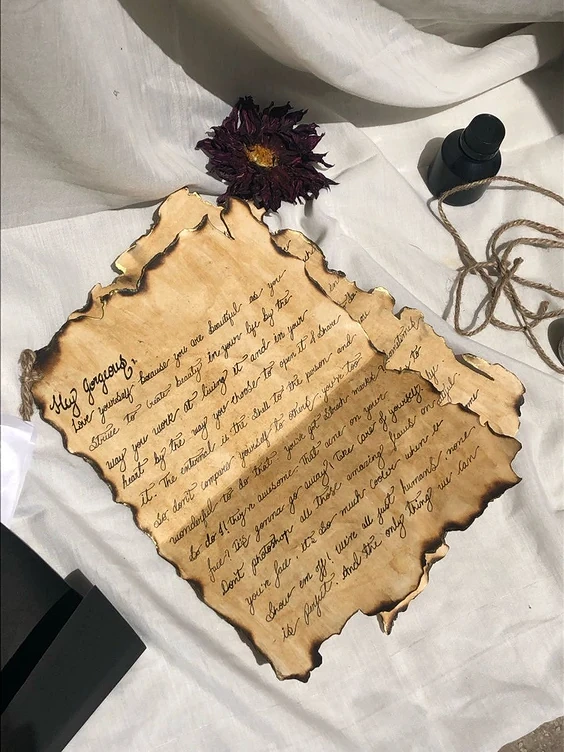 Hey gorgeous,
Love yourself because you are beautiful as you
Strive to create beauty in your life by the
way you work at living it and in your
heart by the way you choose to open it & share
it. The external is the shell to the person and
So don't compare yourself to others, you're too
wonderful to do that. You've got stretch marks?
So do I! They're awesome. That acne on your
face? It's gonna go away! Take care of yourself.
Don't photoshop all those amazing flaws on
you're face. It's so much cooler when u
Show em off! We're all just humans, none
is perfect. And the only thing we can